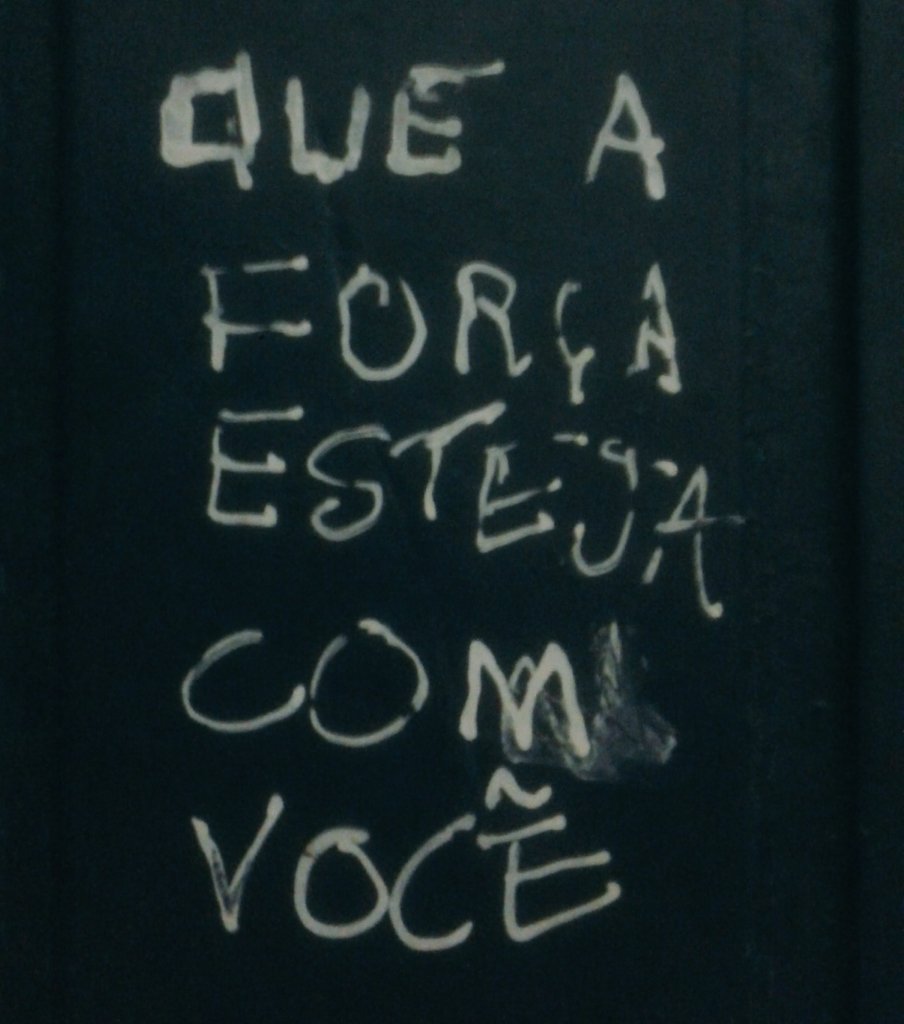 QUE A
FORÇA
ESTEJA
COM
VOCẼ